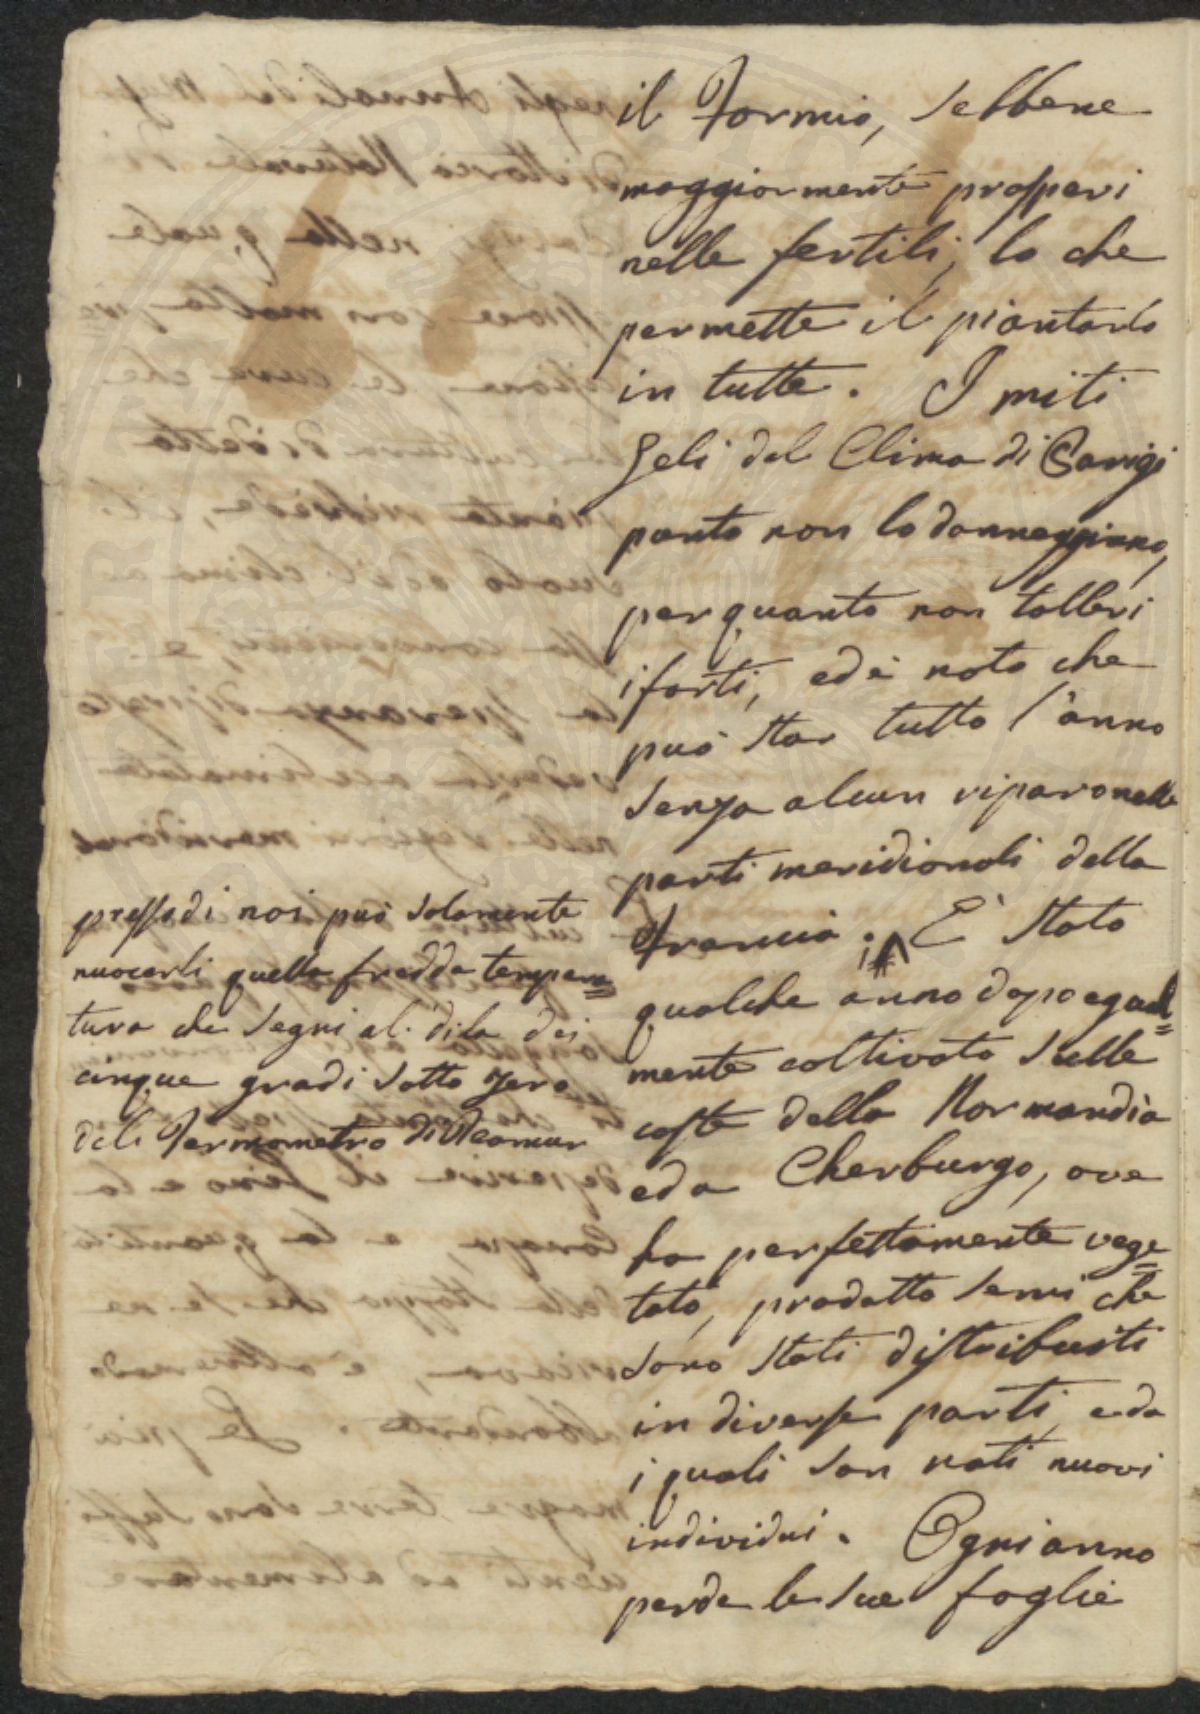 il Formio, sebbene
maggiormente prosperi
nelle fertili, lo che
permette il piantarlo
in tutte. I miti
geli del Clima di Parigi
punto non lo danneggiano,
per quanto non tolleri
i forti, ed è noto che
può star tutto l'anno
senza alcun riparo nelle
parti meridionali della
Francia. È stato
qualche anno dopo egual=
mente coltivato sulle
coste della Normandia
ed a Cherburgo, ove
ha perfettamente vege=
tato, prodotto semi che
sono stati distribuiti
in diverse parti, e da
i quali son nati nuovi
individui. Ogni anno
perde le sue foglie
presso di noi può solamente
nuocerli quella fredda tempera=
tura che segni al di la dei
cinque gradi sotto zero
del Termometro di Reamur